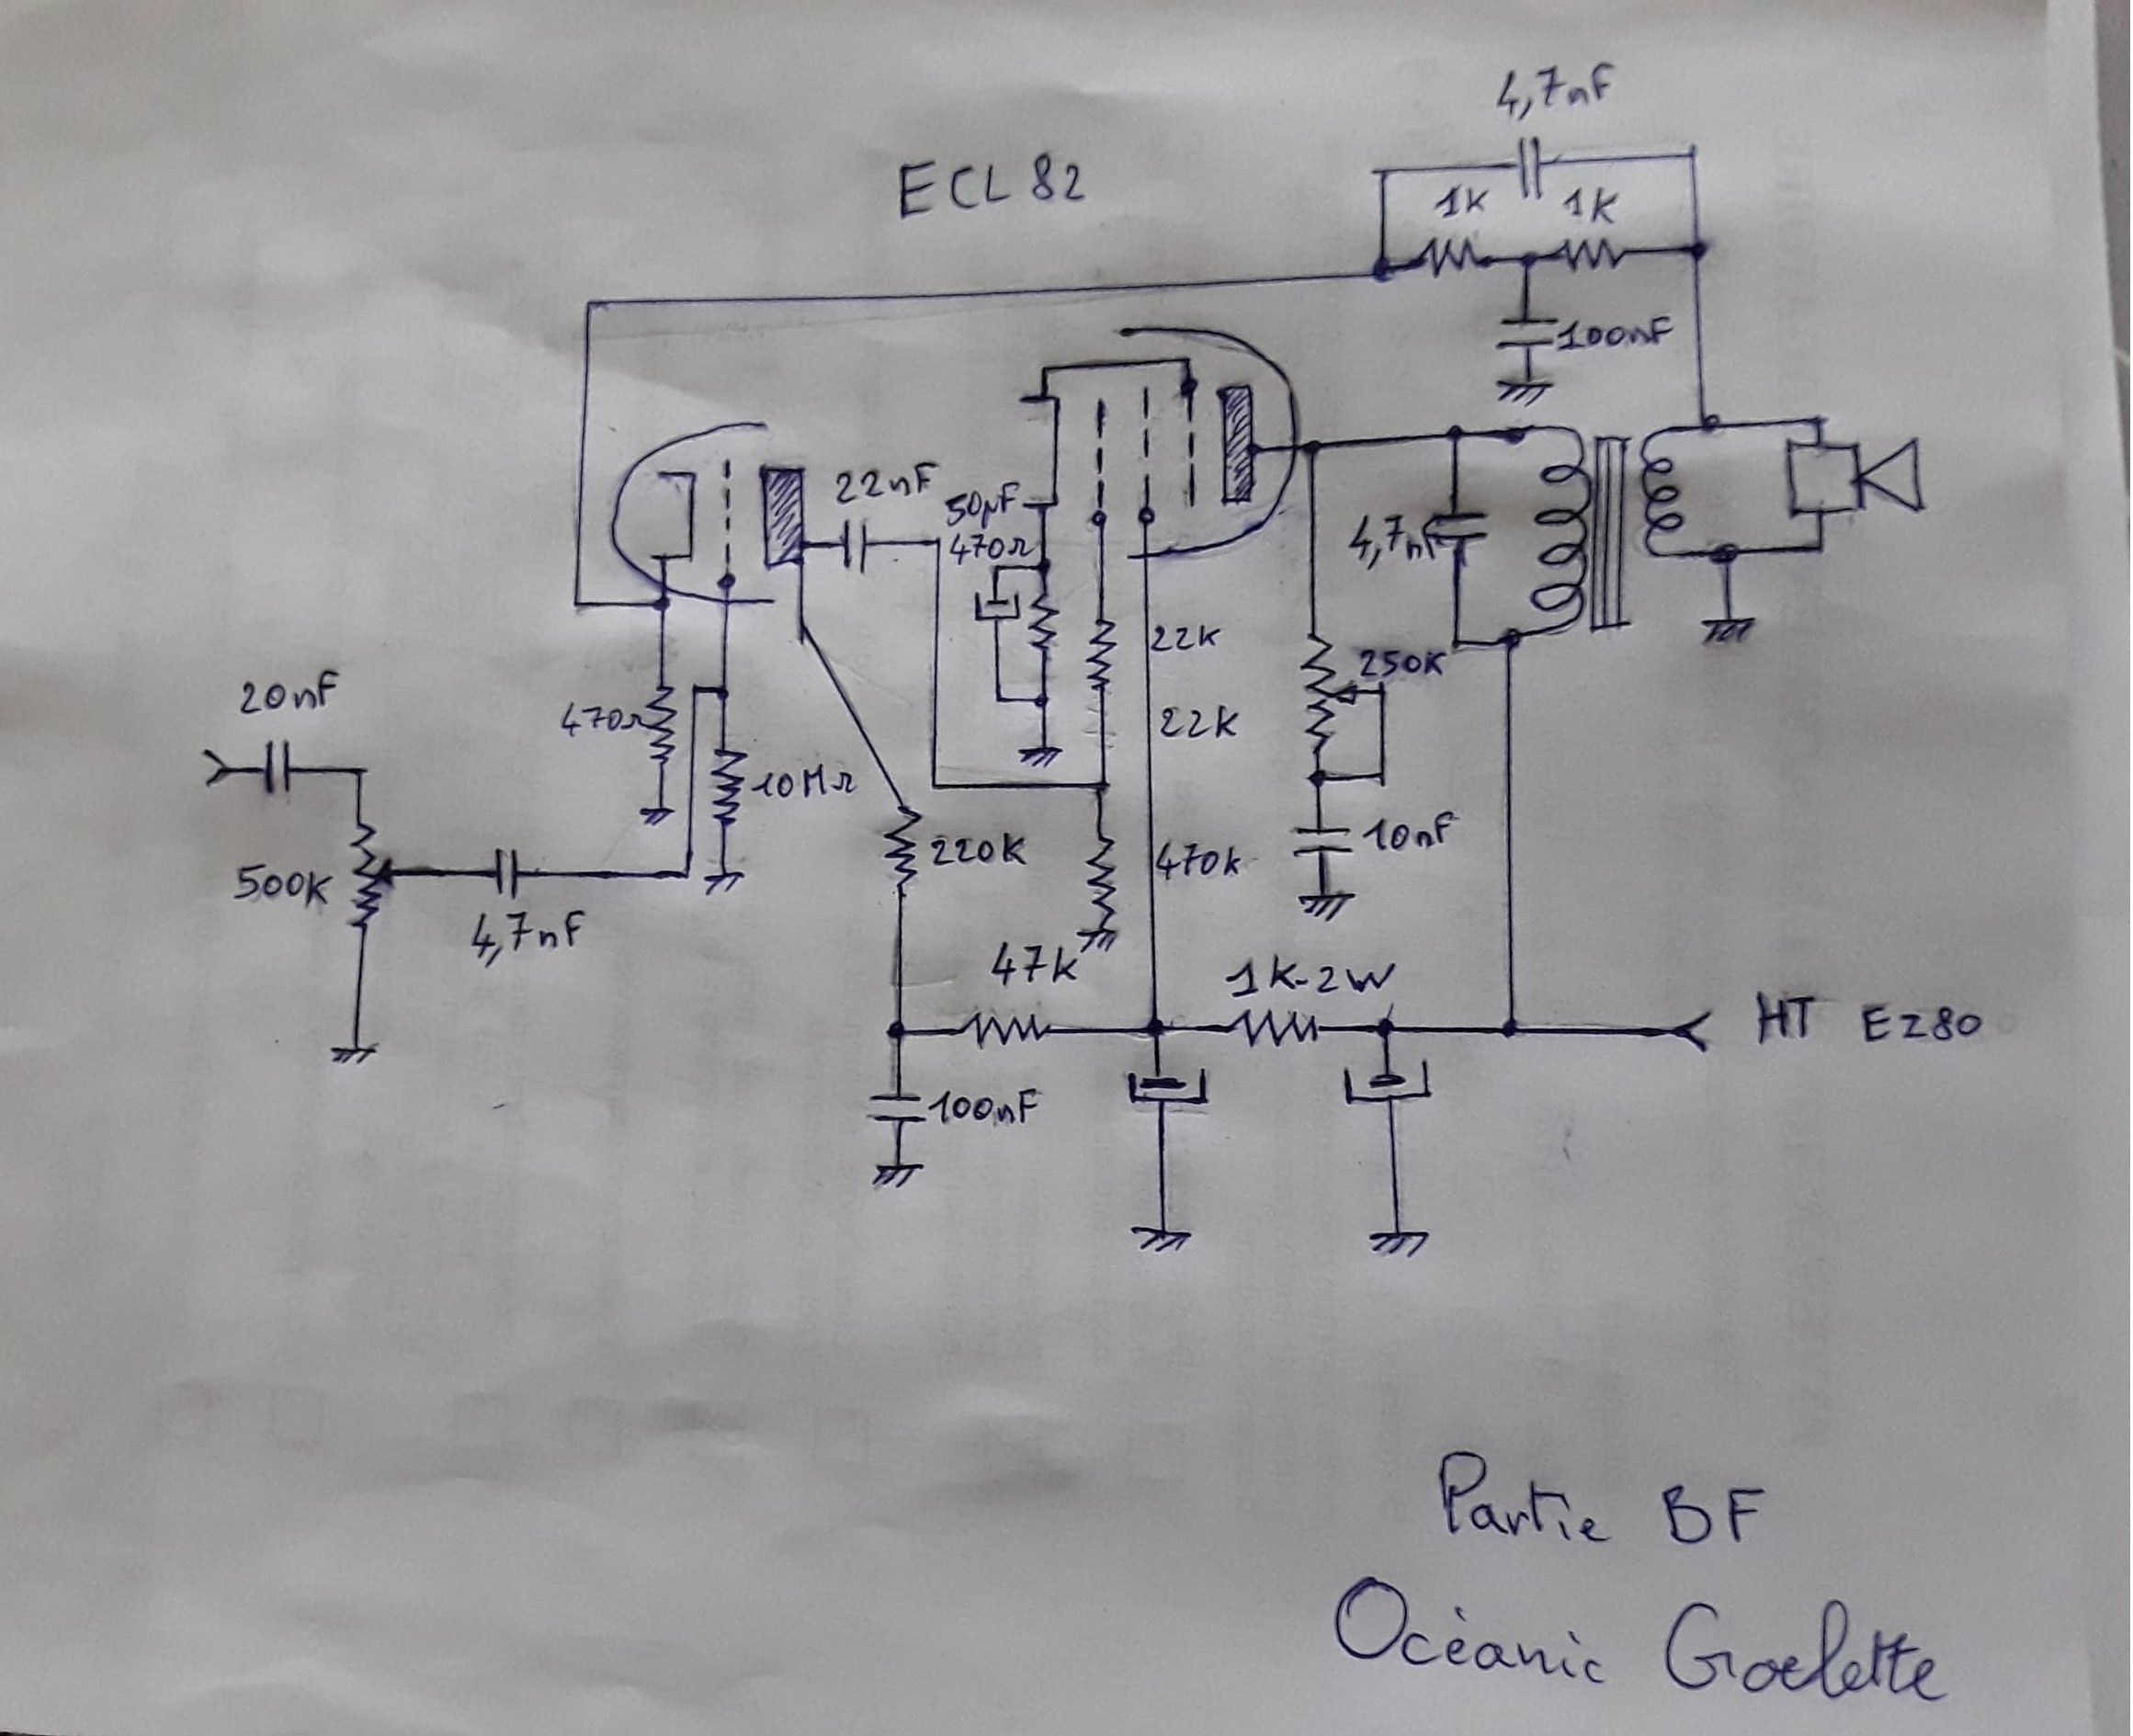 4,7nF
ECL 82
1K 1K
100nF
22nF
50µF
470Ω
4,7nF
22K
250K
20nF
470Ω
22K
10MΩ
10nF
220K
470K
500K
4,7nF
47K
1K-2W
HT EZ80
100nF
Partie BF
Océanic Goelette